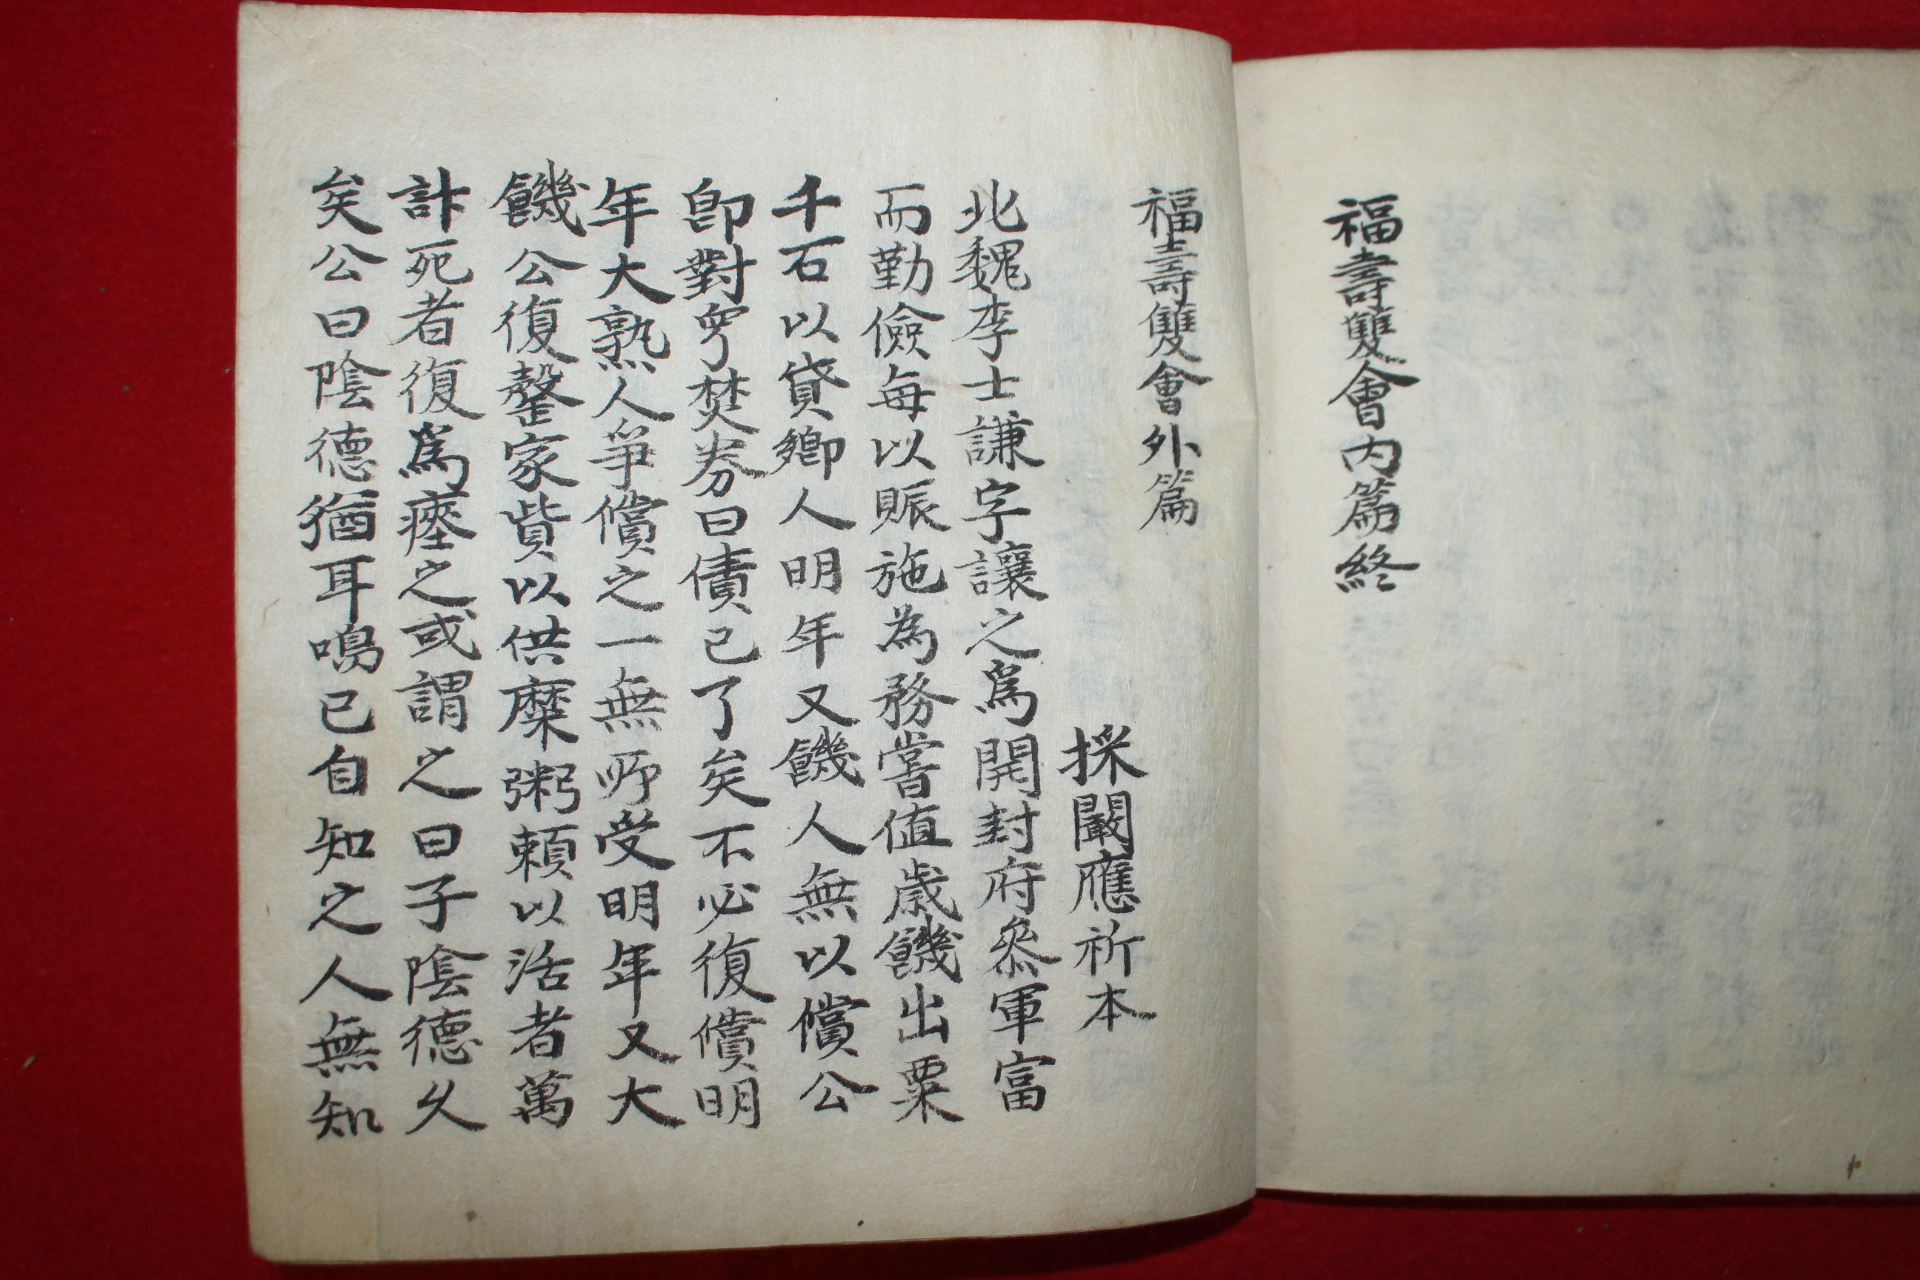 福壽雙會內篇終
福壽雙會外篇
採闞應祈本
北魏李士謙字讓之爲開封府叅軍富
而勤儉每以賑施為務嘗值歲饑出粟
千石以貸鄕人明年又饑人無以償公
卽對眾焚券曰債已了矣不必復償明
年大熟人爭償之一無所受明年又大
饑公復罄家貲以供糜粥頼以活者萬
計死者復爲瘞之或謂之曰子陰德久
矣公曰陰德猶耳鳴已自知之人無知